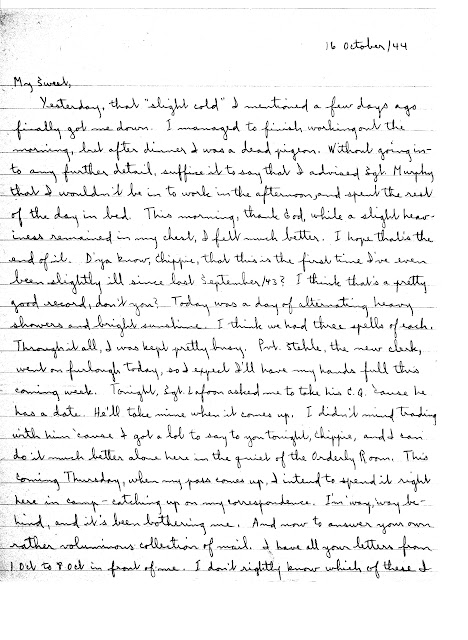 16 October/44
My Sweet,
Yesterday, that "slight cold" I mentioned a few days ago
finally got me down. I managed to finish working out the
morning, but after dinner I was a dead pigeon. Without going in-
to any further detail, suffice it to say that I advised Sgt. Murphy
that I wouldn't be in to work in the afternoon, and spent the rest
of the day in bed. This morning, thank God, while a slight heav-
iness remained in my chest, I felt much better. I hope that's the
end of it. D'ya know, Chippie, that this is the first time I've even
been slightly ill since last September/43? I think that's a pretty
good record, don't you? Today was a day of alternating heavy
showers and bright sunshine. I think we had three spells of each.
Through it all, I was kept pretty busy. Pvt. Stehle, the new clerk,
went on furlough today, so I expect I'll have my hands full this
coming week. Tonight, Sgt. Lafoon asked me to take his C.Q. 'cause he
has a date. He'll take mine when it comes up. I didn't mind trading
with him 'cause I got a lot to say to you tonight, Chippie, and I can
do it much better alone here in the quiet of the Orderly Room. This
coming Thursday, when my pass comes up, I intend to spend it right
here in camp - catching up on my correspondence. I'm way, way be-
hind, and it's been bothering me. And now to answer your own
rather voluminous collection of mail. I have all your letters from
1 Oct to 8 Oct in front of me. I don't rightly know which of these I